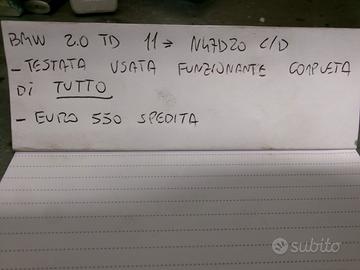 BMW 2.0 TD 11→ N47D20 C/D
- TESTATA USATA FUNZIONANTE COMPLETA
DI TUTTO
- EURO 550 SPEDITA
subito